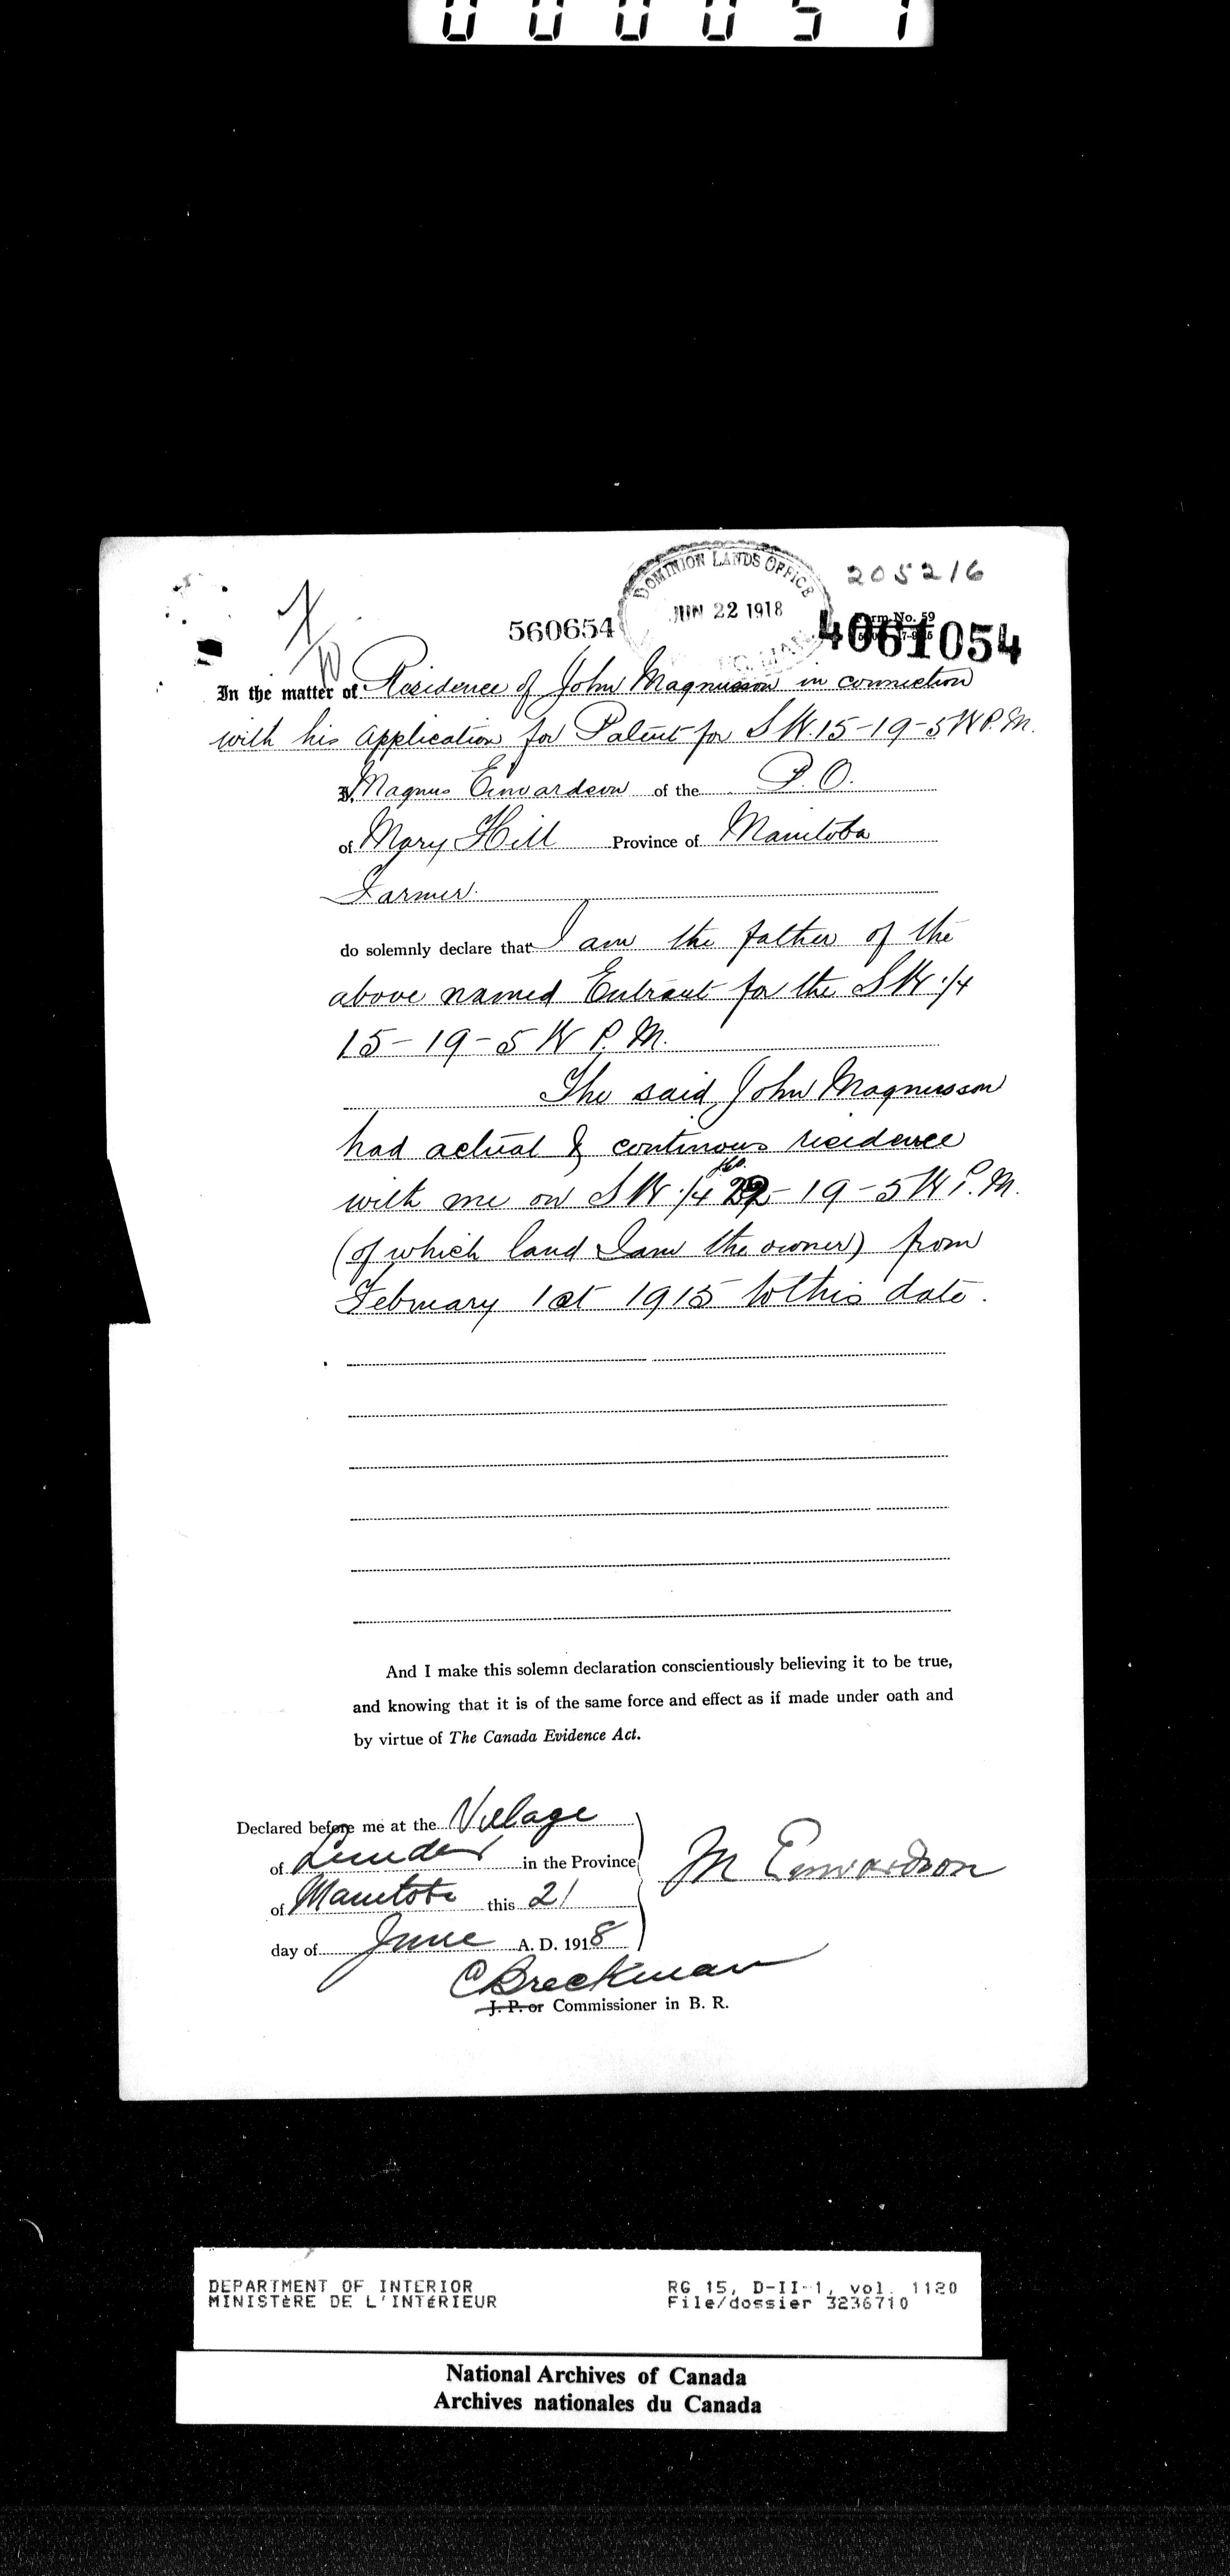 000051
DOMINION LANDS OFFICE
JUN 22 1918
205216
560654
Form No. 59
4061054
In the matter of Residence of John Magnusson in connection
with his application for Patent for S W. 15-19-5 W P. M.
I, Magnus Einvardson of the P. O.
of Mary Hill Province of Manitoba
Farmer.
do solemnly declare that I am the father of the
above named Entrant for the S W 1/4
15-19-5 W P. M.
The said John Magnusson
had actual & continous residence
with me on S W 1/4 22-19-5 W P. M.
(of which land I am the owner) from
February 1st 1915 to this date.
And I make this solemn declaration conscientiously believing it to be true,
and knowing that it is of the same force and effect as if made under oath and
by virtue of The Canada Evidence Act.
Declared before me at the Village
of Lundar in the Province
of Manitoba this 21
day of June A. D. 1918
M Einvardson
Breckman
J. P. or Commissioner in B. R.
DEPARTMENT OF INTERIOR
MINISTÈRE DE L'INTÉRIEUR
RG 15, D-II-1, vol. 1120
File/dossier 3236710
National Archives of Canada
Archives nationales du Canada